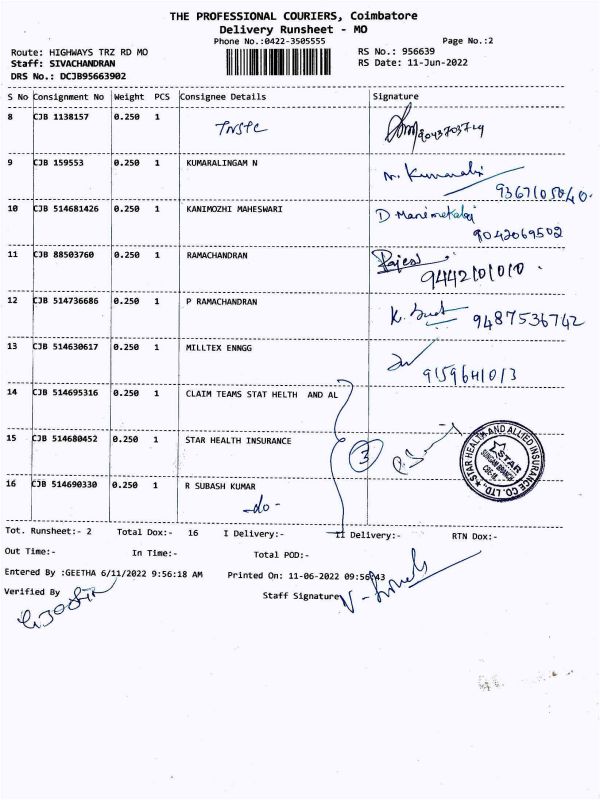 THE PROFESSIONAL COURIERS, Coimbatore
Delivery Runsheet - MO
Phone No.:0422-3505555
Page No.:2
Route: HIGHWAYS TRZ RD MO
RS No.: 956639
Staff: SIVACHANDRAN
RS Date: 11-Jun-2022
DRS No.: DCJB95663902
S No Consignment No Weight PCS Consignee Details Signature
8 CJB 1138157 0.250 1 TNSTC
9 CJB 159553 0.250 1 KUMARALINGAM N
9367105040.
10 CJB 514681426 0.250 1 KANIMOZHI MAHESWARI D Manimekalai
9042069502
11 CJB 88503760 0.250 1 RAMACHANDRAN
9442101010.
12 CJB 514736686 0.250 1 P RAMACHANDRAN
9487536742
13 CJB 514630617 0.250 1 MILLTEX ENNGG
9159641013
14 CJB 514695316 0.250 1 CLAIM TEAMS STAT HELTH AND AL
15 CJB 514680452 0.250 1 STAR HEALTH INSURANCE 3
STAR HEALTH AND ALLIED INSURANCE CO. LTD.,
STAR
16 CJB 514690330 0.250 1 R SUBASH KUMAR
-do-
Tot. Runsheet:- 2 Total Dox:- 16 I Delivery:- II Delivery:- RTN Dox:-
Out Time:- In Time:- Total POD:-
Entered By :GEETHA 6/11/2022 9:56:18 AM Printed On: 11-06-2022 09:56:43
Verified By Staff Signature